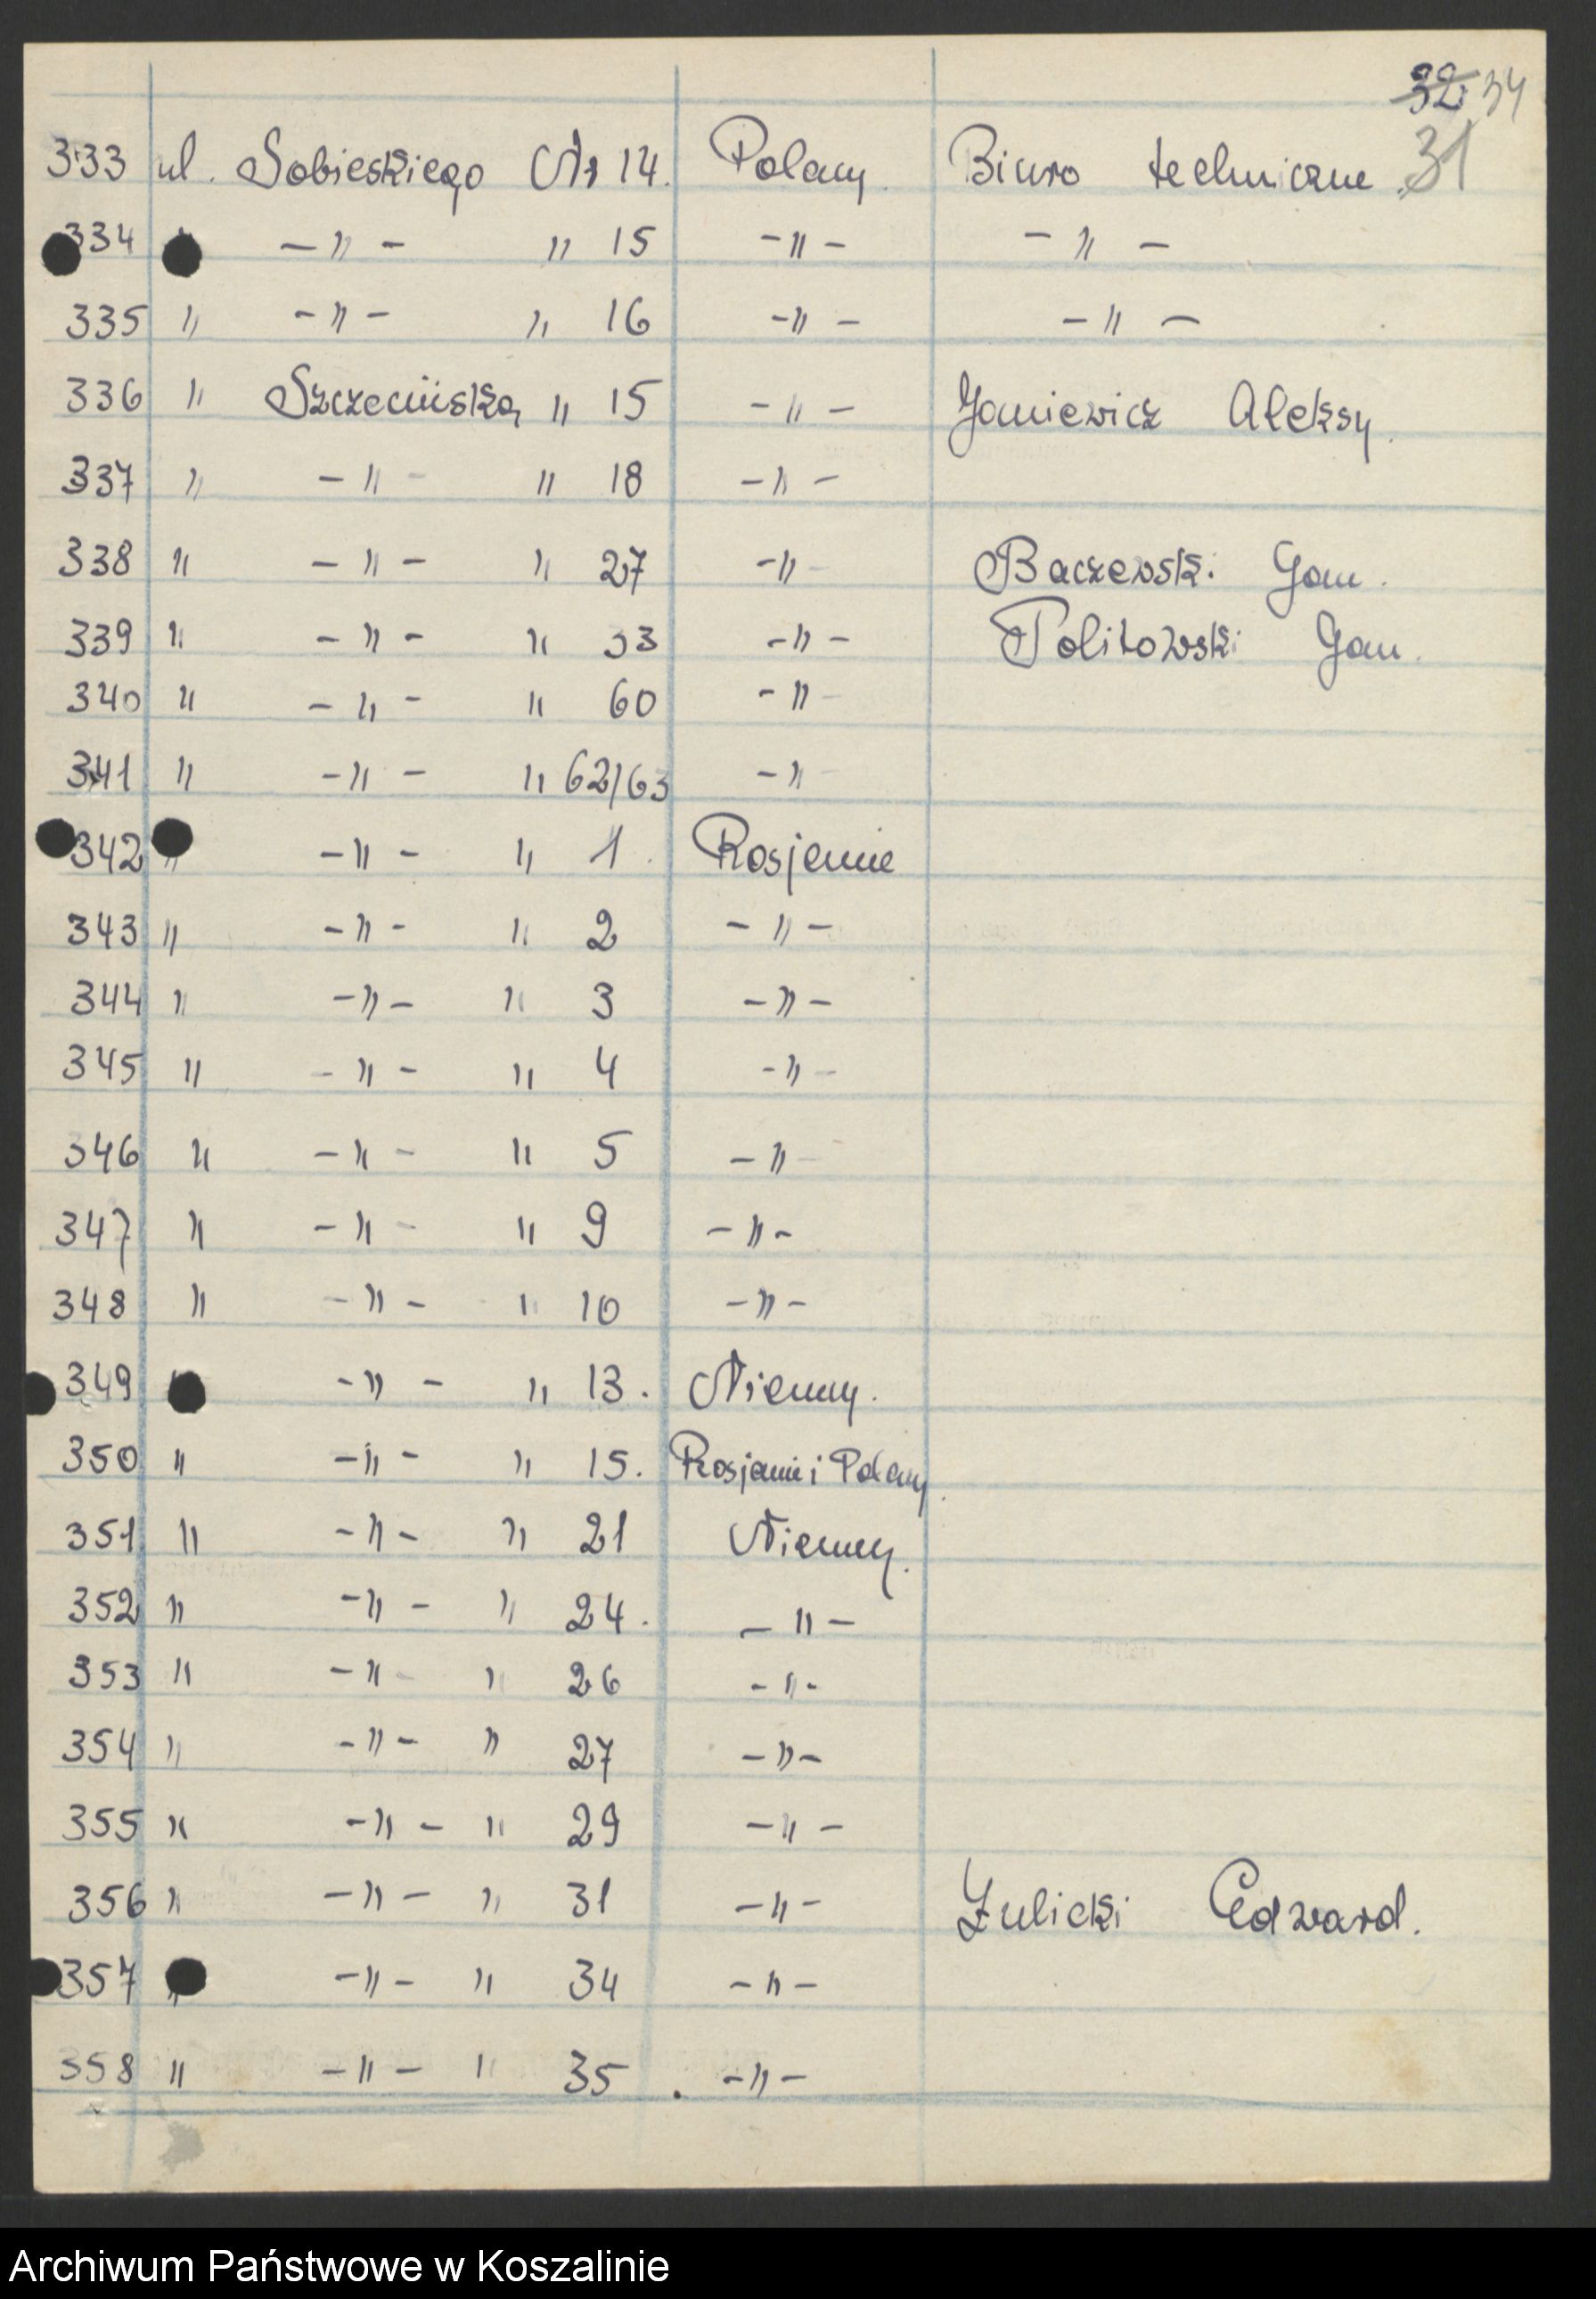 32 34
31
333 ul. Sobieskiego Nr 14. Polacy. Biuro techniczne.
334 " -"- " 15 -"- -"-
335 " -"- " 16 -"- -"-
336 " Szczecińska " 15 -"- Janiewicz Aleksy.
337 " -"- " 18 -"-
338 " -"- " 27 -"- Baczewski Jan.
339 " -"- " 33 -"- Politowski Jan.
340 " -"- " 60 -"-
341 " -"- " 62/63 -"-
342 " -"- " 1. Rosjanie
343 " -"- " 2 -"-
344 " -"- " 3 -"-
345 " -"- " 4 -"-
346 " -"- " 5 -"-
347 " -"- " 9 -"-
348 " -"- " 10 -"-
349 -"- " 13. Niemcy.
350 " -"- " 15. Rosjanie i Polacy.
351 " -"- " 21 Niemcy.
352 " -"- " 24. -"-
353 " -"- " 26 -"-
354 " -"- " 27 -"-
355 " -"- " 29 -"-
356 " -"- " 31 -"- Żulicki Edward.
357 " -"- " 34 -"-
358 " -"- " 35. -"-
Archiwum Państwowe w Koszalinie